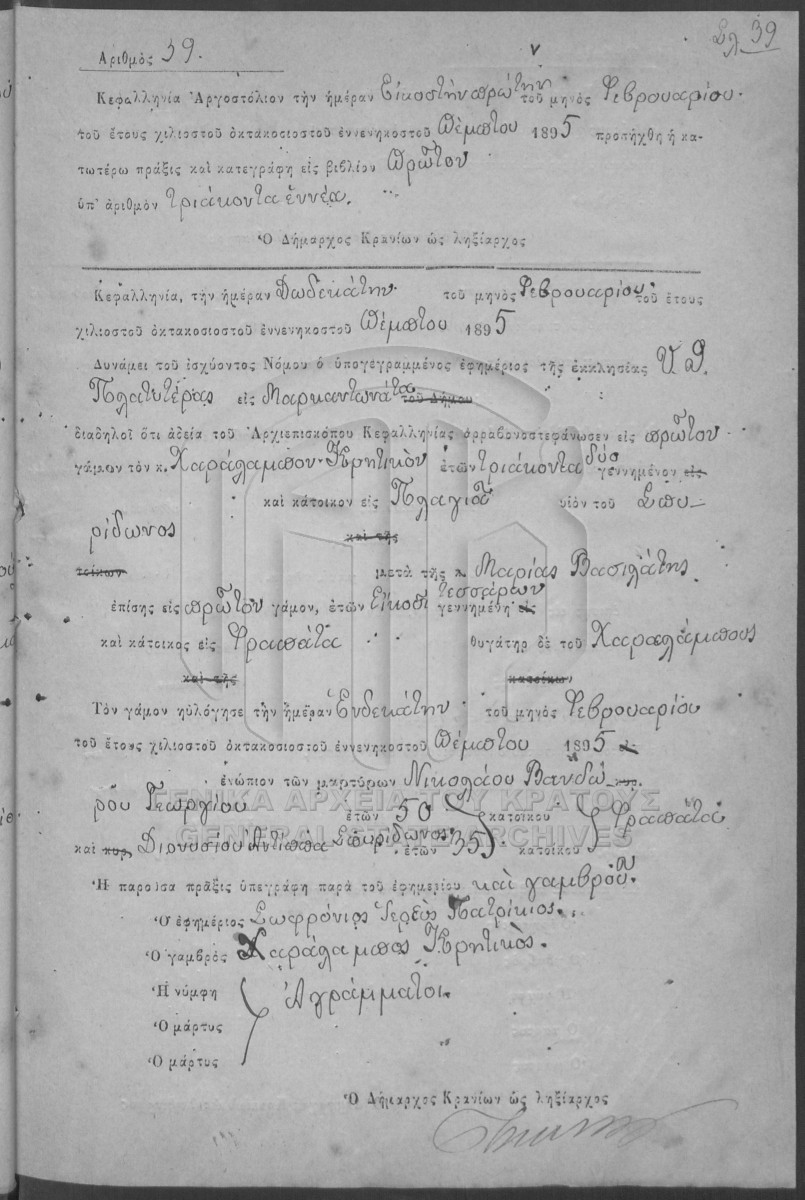 Σελ 39
Αριθμὸς 39.
Κεφαλληνία Ἀργοστόλιον τὴν ἡμέραν Εἰκοστὴν πρώτην τοῦ μηνὸς Φεβρουαρίου
τοῦ ἔτους χιλιοστοῦ ὀκτακοσιοστοῦ ἐννενηκοστοῦ Πέμπτου 1895 προσήχθη ἡ κα-
τωτέρω πρᾶξις καὶ κατεγράφη εἰς βιβλίον Πρῶτον
ὑπ' ἀριθμὸν τριάκοντα ἐννέα.
Ὁ Δήμαρχος Κρανίων ὡς ληξίαρχος
Κεφαλληνία, τὴν ἡμέραν Δωδεκάτην τοῦ μηνὸς Φεβρουαρίου τοῦ ἔτους
χιλιοστοῦ ὀκτακοσιοστοῦ ἐννενηκοστοῦ Πέμπτου 1895
Δυνάμει τοῦ ἰσχύοντος Νόμου ὁ ὑπογεγραμμένος ἐφημέριος τῆς ἐκκλησίας Υ Θ.
Πλατυτέρας εἰς Μαρκαντωνάτα τοῦ Δήμου
διαδηλοῖ ὅτι ἀδείᾳ τοῦ Ἀρχιεπισκόπου Κεφαλληνίας ἀρραβονοστεφάνωσεν εἰς πρῶτον
γάμον τὸν κ. Χαράλαμπον Κρητικὸν ἐτῶν τριάκοντα δύο γεννημένον εἰς
καὶ κάτοικον εἰς Πλαγιὰ υἱὸν τοῦ Σπυ-
ρίδωνος καὶ τῆς
τοίκων μετὰ τῆς κ. Μαρίας Βασιλάτης
ἐπίσης εἰς πρῶτον γάμον, ἐτῶν Εἴκοσι τεσσάρων γεννημένη εἰς
καὶ κάτοικος εἰς Φραπάτα θυγάτηρ δὲ τοῦ Χαραλάμπους
καὶ τῆς κατοίκων
Τὸν γάμον ηὐλόγησε τὴν ἡμέραν Ἑνδεκάτην τοῦ μηνὸς Φεβρουαρίου
τοῦ ἔτους χιλιοστοῦ ὀκτακοσιοστοῦ ἐννενηκοστοῦ Πέμπτου 1895
ἐνώπιον τῶν μαρτύρων Νικολάου Βανδώ-
ρου Γεωργίου ἐτῶν 50 κατοίκου Φραπάτα
καὶ κυρ. Διονυσίου Ἀντίππα Σπυρίδωνος ἐτῶν 35 κατοίκου
Ἡ παροῦσα πρᾶξις ὑπεγράφη παρὰ τοῦ ἐφημερίου καὶ γαμβροῦ.
Ὁ ἐφημέριος Σωφρόνιος Ἱερεὺς Πατρίκιος.
Ὁ γαμβρὸς Χαράλαμπος Κρητικὸς.
Ἡ νύμφη Ἀγράμματοι.
Ὁ μάρτυς
Ὁ μάρτυς
Ὁ Δήμαρχος Κρανίων ὡς ληξίαρχος
ΓΕΝΙΚΑ ΑΡΧΕΙΑ ΤΟΥ ΚΡΑΤΟΥΣ
GENERAL STATE ARCHIVES